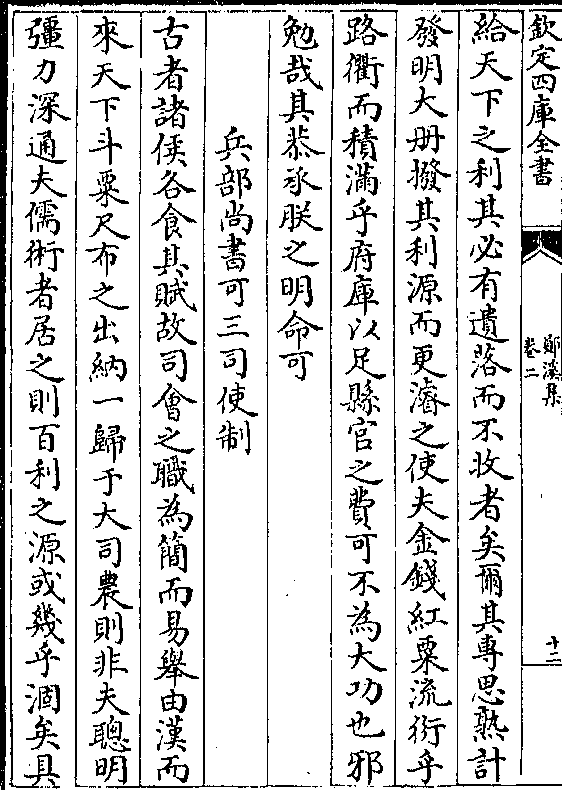 欽定四庫全書
鄖溪集
卷二
十二
給天下之利其必有遺落而不收者矣爾其專思熟計
發明大冊撥其利源而更濬之使夫金錢紅粟流衍乎
路衢而積滿乎府庫以足縣官之費可不為大功也邪
勉哉其恭承朕之明命可
兵部尚書可三司使制
古者諸侯各食其賦故司會之職為簡而易舉由漢而
來天下斗粟尺布之出納一歸于大司農則非夫聰明
彊力深通夫儒術者居之則百利之源或幾乎涸矣具